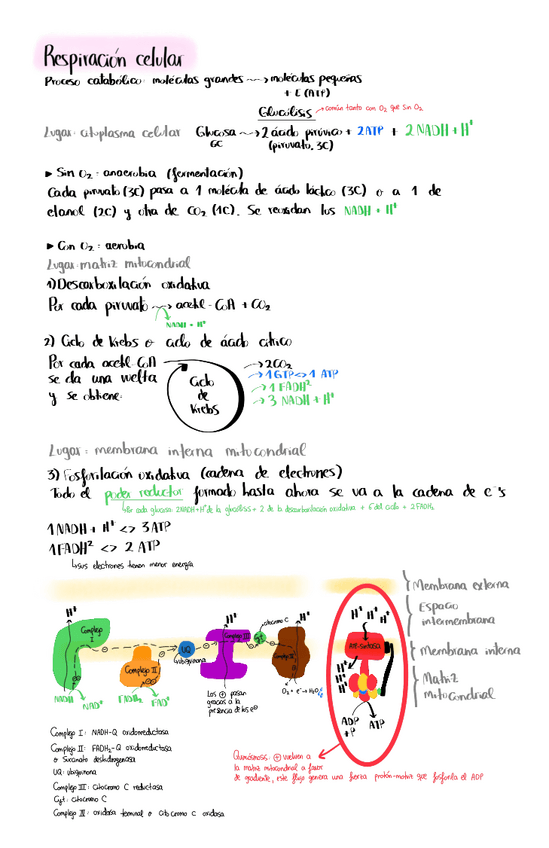 Respiración celular
Proceso catabólico: moléculas grandes ~~> moléculas pequeñas
+ E (ATP)
Glucólisis → común tanto con O₂ que sin O₂
Lugar: citoplasma celular Glucosa ~~> 2 ácido pirúvico + 2ATP + 2 NADH + H⁺
6C (piruvato, 3C)
▸ Sin O₂: anaerobia (fermentación)
Cada piruvato (3C) pasa a 1 molécula de ácido láctico (3C) o a 1 de
etanol (2C) y otra de CO₂ (1C). Se reoxidan los NADH + H⁺
▸ Con O₂: aerobia
Lugar: matriz mitocondrial
1) Descarboxilación oxidativa
Por cada piruvato ~~> acetil-CoA + CO₂
NADH + H⁺
2) Ciclo de Krebs o ciclo de ácido cítrico
Por cada acetil-CoA
se da una vuelta
y se obtiene:
Ciclo
de
Krebs
→ 2CO₂
→ 1 GTP <> 1 ATP
→ 1 FADH²
→ 3 NADH + H⁺
Lugar: membrana interna mitocondrial
3) Fosforilación oxidativa (cadena de electrones)
Todo el poder reductor formado hasta ahora se va a la cadena de e⁻s
↳ Por cada glucosa: 2NADH+H⁺ de la glucólisis + 2 de la descarboxilación oxidativa + 6 del ciclo + 2 FADH₂
1 NADH + H⁺ <> 3 ATP
1 FADH² <> 2 ATP
↳ sus electrones tienen menor energía
Membrana externa
Espacio
intermembrana
Membrana interna
Matriz
mitocondrial
H⁺ H⁺ H⁺ H⁺ H⁺ H⁺
Complejo
I
UQ
Ubiquinona
Complejo II
Complejo III
citocromo C
ATP-sintasa
H⁺
H⁺
H⁺
NADH NAD⁺ FADH₂ FAD⁺
Los ⊕ pasan
gracias a la
presencia de los e⊖
ADP
+P
ATP
Complejo I: NADH-Q oxidorreductasa
Complejo II: FADH₂-Q oxidorreductasa
o Succinato deshidrogenasa
UQ: ubiquinona
Complejo III: citocromo C reductasa
Cyt: citocromo C
Complejo IV: oxidasa terminal o citocromo C oxidasa
Quimiósmosis: ⊕ vuelven a
la matriz mitocondrial a favor
de gradiente, este flujo genera una fuerza protón-motriz que fosforila el ADP